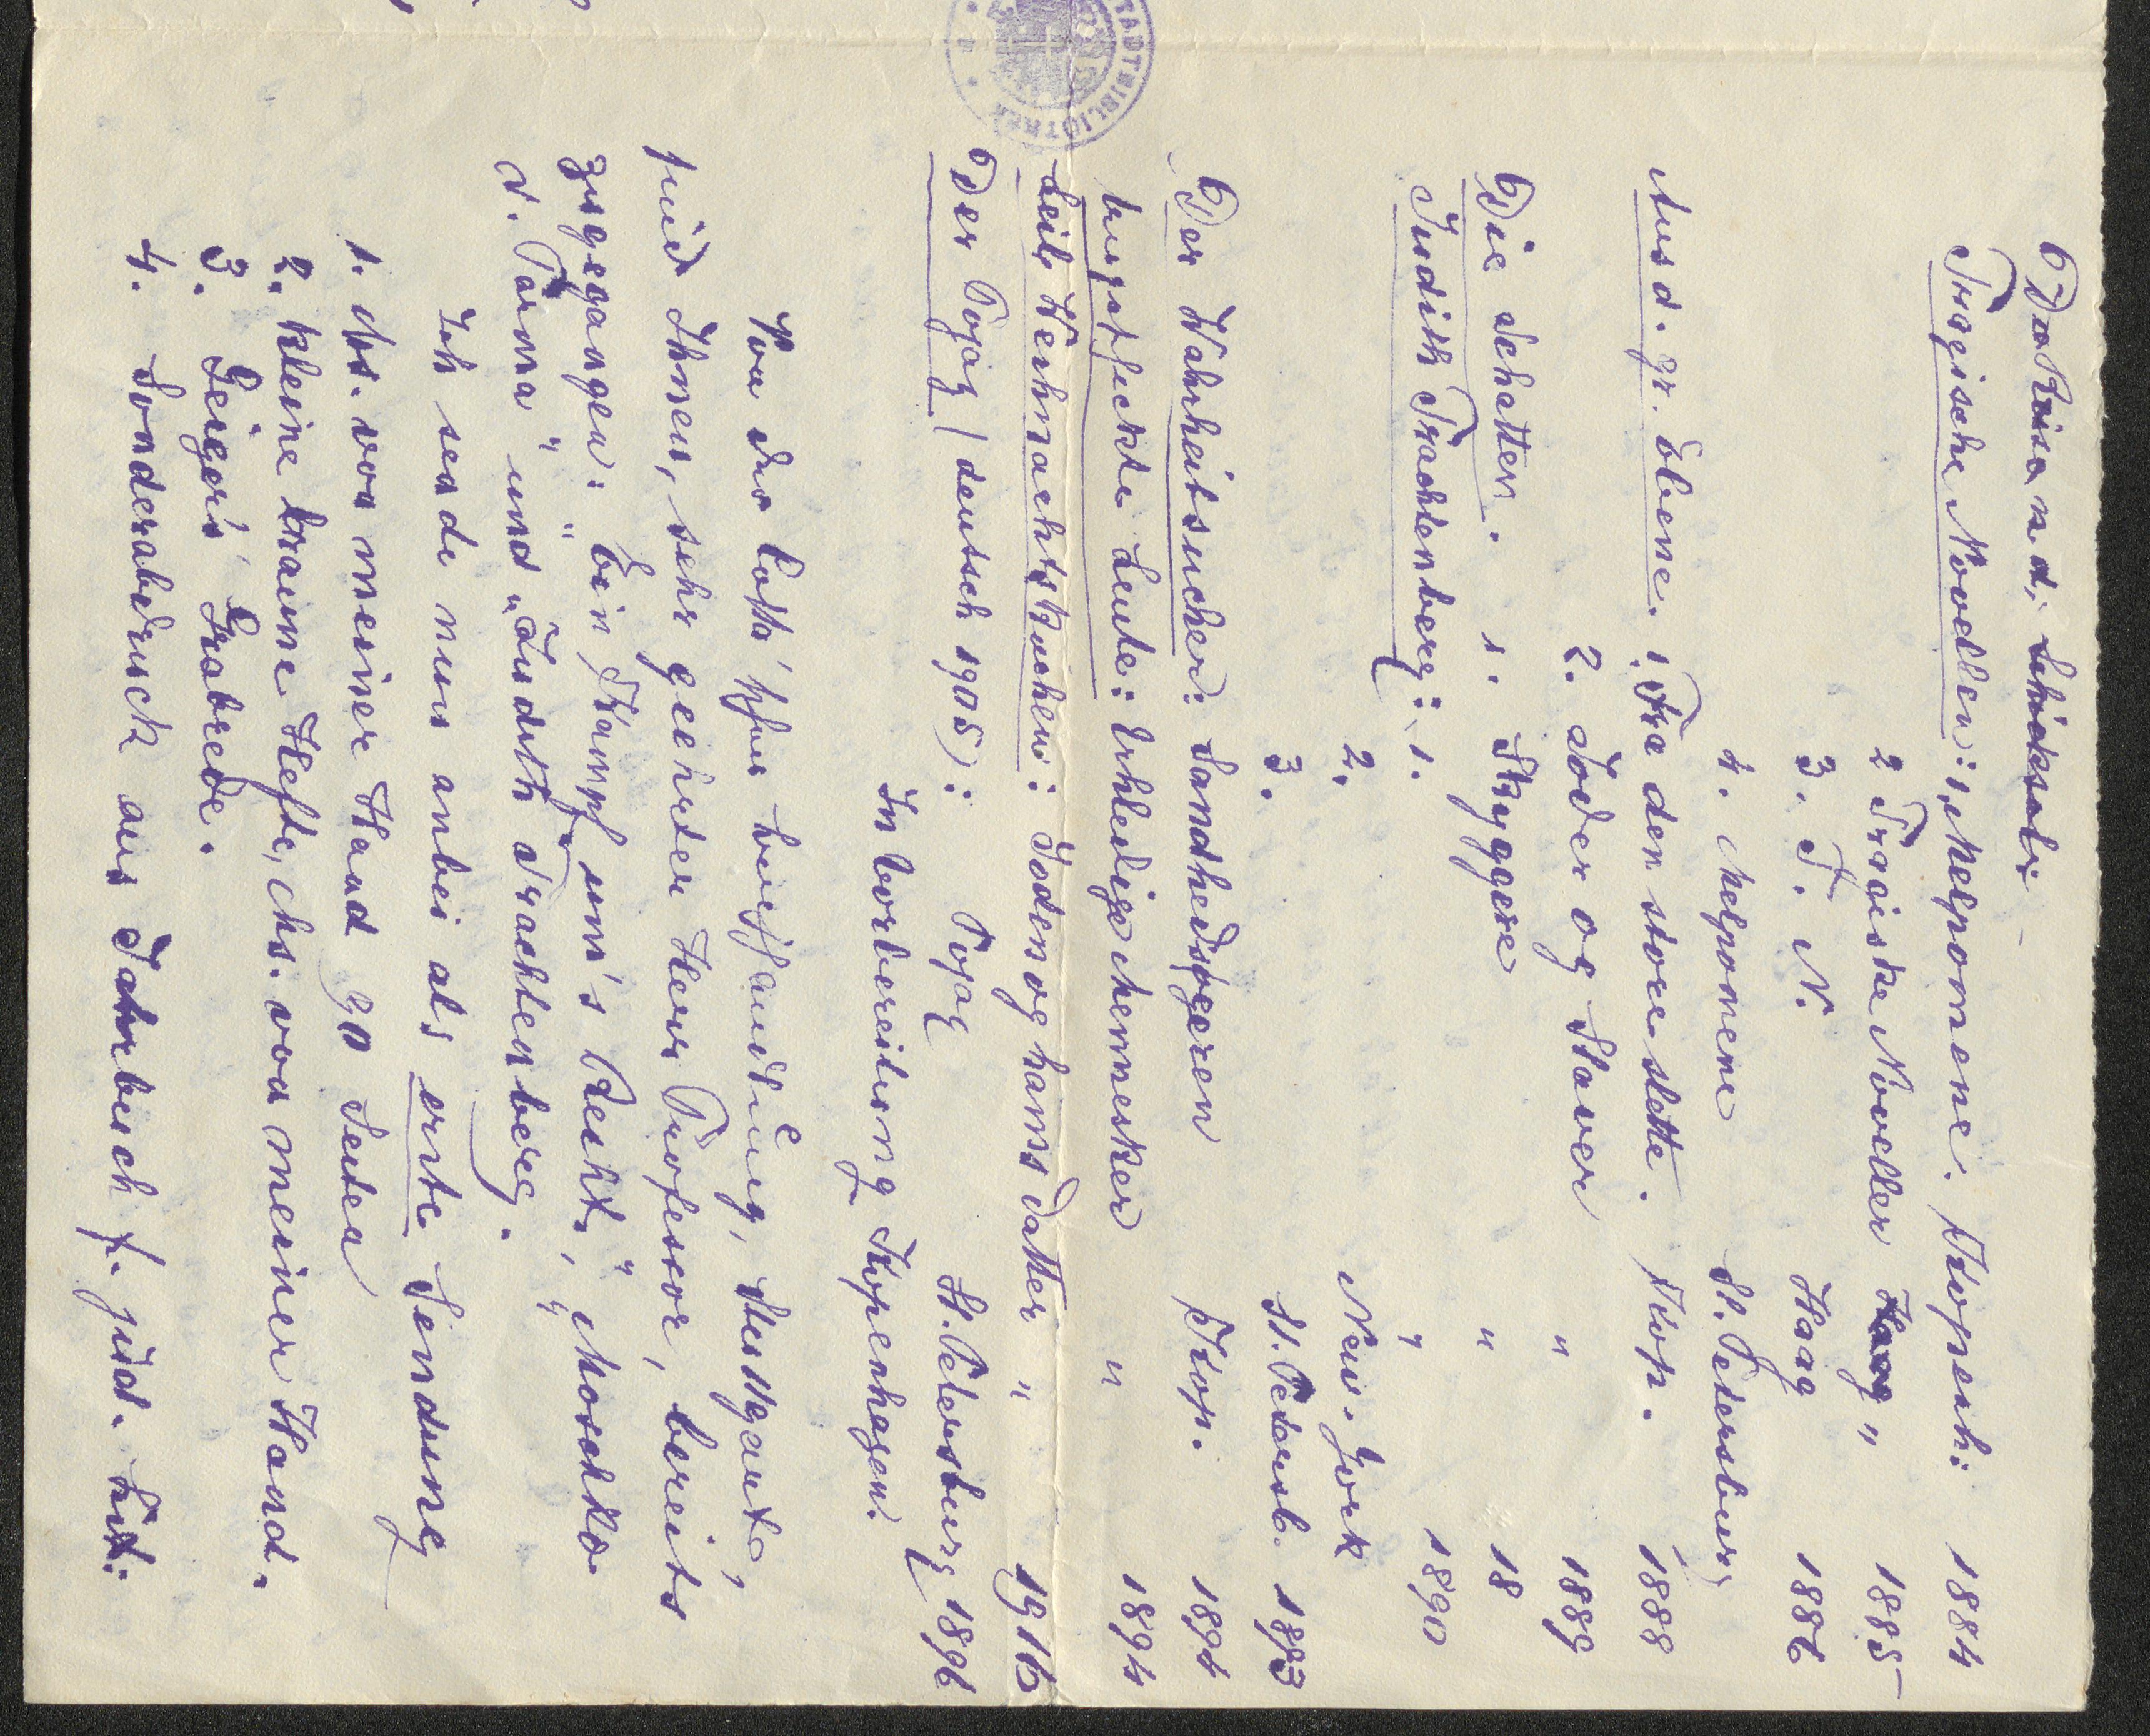 Tragische Novellen: 1. Melpomene. Kopenh: 1884
2 Tragiske Noveller " 1885
3. T. N. Haag 1886
4. Melpomene St. Petersburg
Aus d. gr. Ebene. 1. Fra den store slette. Kop. 1888
2. Jøder og Slaver " 1889
Die Schatten. 1. Skyggere " 18
Judith Trachtenberg: 1. " 1890
2. New-York
3. St. Petersb. 1893
Der Wahrheitsucher: Sandhedsøgeren Kop. 1894
Leute: Uhledige Mennesker " 1894
Leib Weihnachtskuchen: Joden og hans Datter " 1916
Der Pojaz (deutsch 1905): Pojaz St. Petersburg 1896
In Vorbereitung Kopenhagen.
Von der Cotta'schen Buchhandlung, Stuttgart,
sind Ihnen, sehr geehrter Herr Professor, bereits
zugegangen: "Ein Kampf um's Recht," "Moschko
v. Parma" und "Judith Trachtenberg.
Ich sende nun anbei als erste Sendung
1. Ms. von meiner Hand 90 Seiten
2. kleine braune Hefte, Ms. von meiner Hand.
3. Geiger's Grabrede.
4. Sonderabdruck aus Jahrbuch f. jüd. Lit.
STADTBIBLIOTHEK